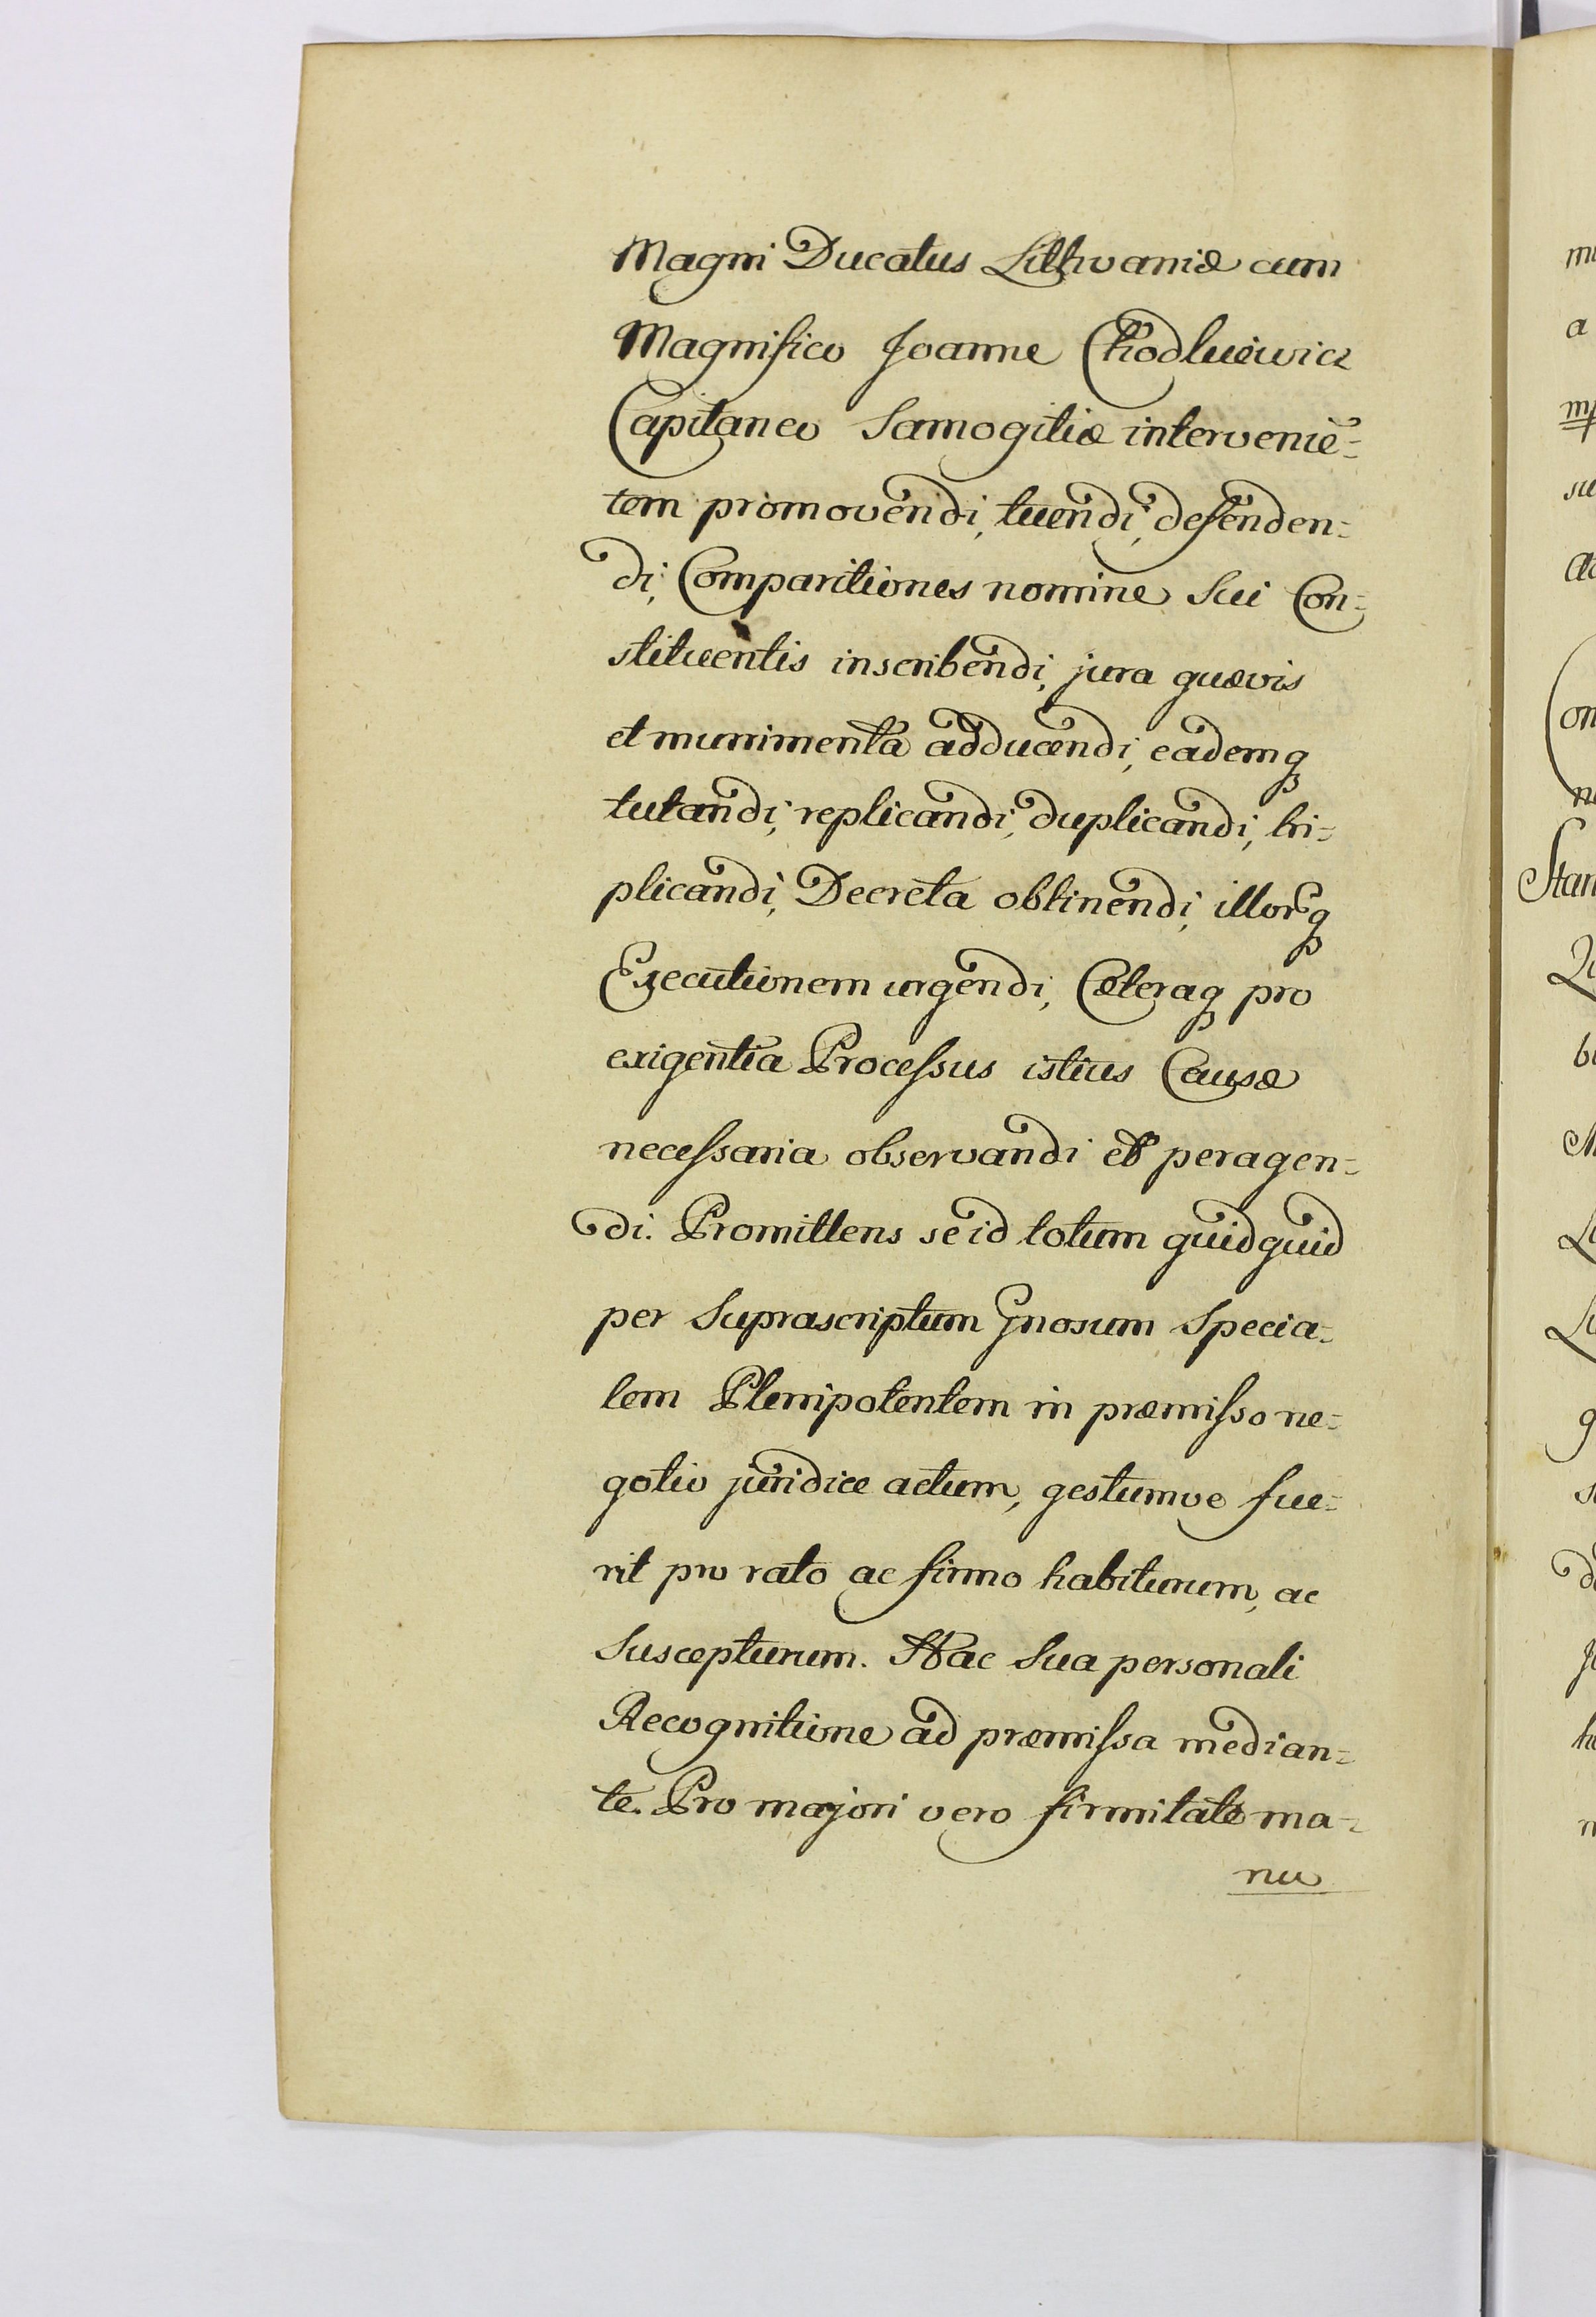 Magni Ducatus Lithvaniæ cum
Magnifico Joanne Chodkiewicz
Capitaneo Samogitiæ intervenie͂=
tem promovendi, tuendi, defenden=
di, Comparitiones nomine Sui Con=
stituentis inscribendi, jura quævis
et munimenta adducendi, eademq;
tutandi, replicandi, duplicandi, tri=
plicandi, Decreta obtinendi, illorq;
Executionem urgendi, Cæteraq; pro
exigentia Processus istius Causæ
necessaria observandi et peragen=
di. Promittens se id totum quidquid
per Suprascriptum Gnosum Specia=
lem Plenipotentem in præmisso ne=
gotio juridice actum, gestumve fue=
rit pro rato ac firmo habiturum, ac
Suscepturum. Hac Sua personali
Recognitione ad præmissa median=
te. Pro majori vero firmitate ma=
nu